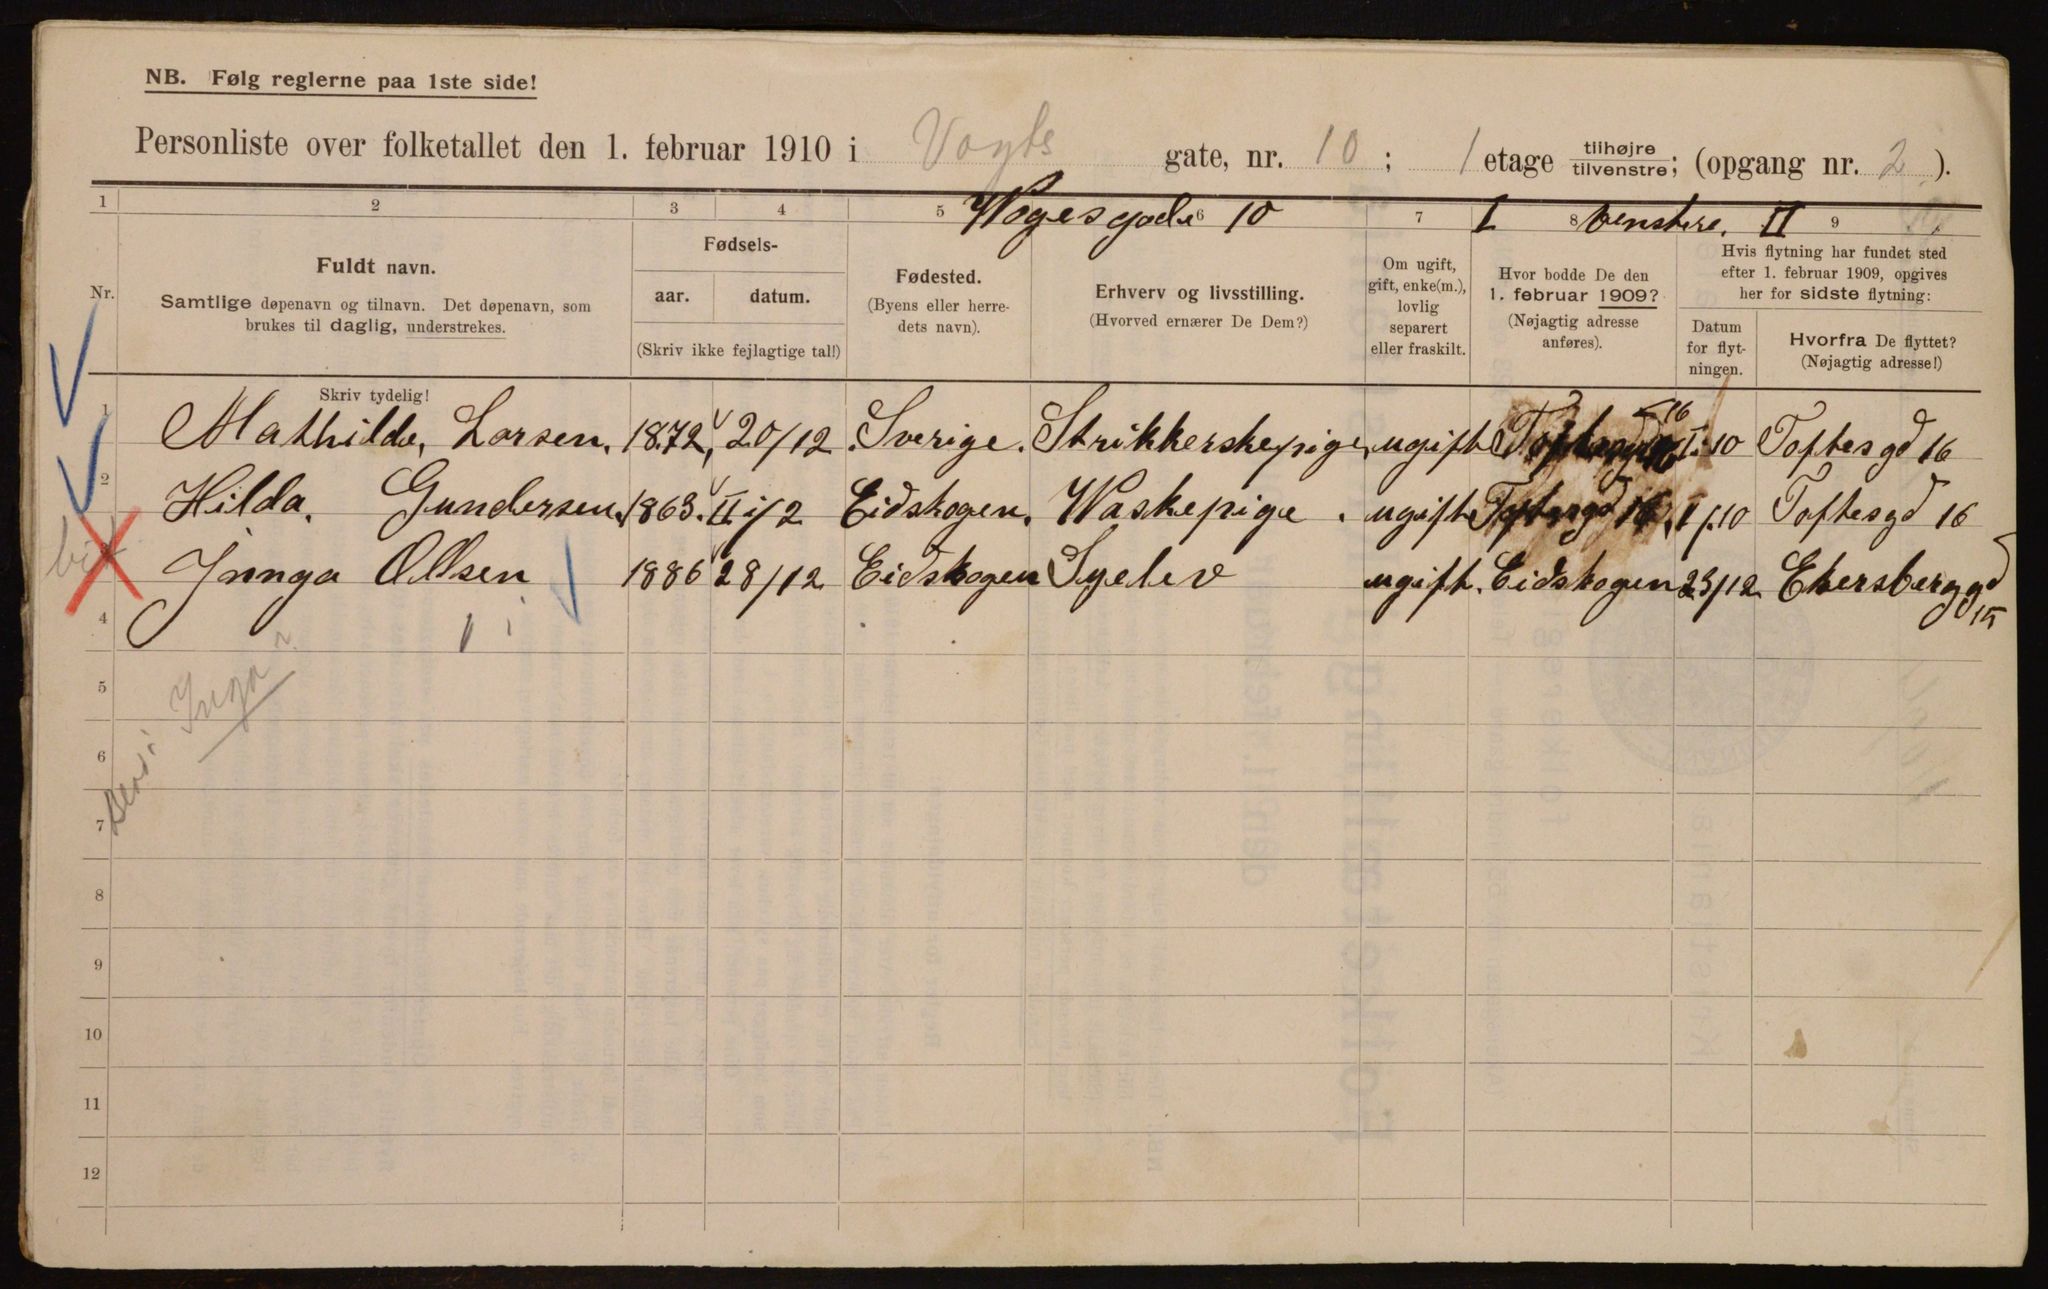 NB. Følg reglerne paa 1ste side!
Personliste over folketallet den 1. februar 1910 i Vogts gate, nr. 10; 1 etage tilhøjre tilvenstre; (opgang nr. 2).
1 2 3 4 5 6 7 8 9
Wogesgade 10 I venstre. II
Nr.
Fuldt navn.
Samtlige døpenavn og tilnavn. Det døpenavn, som
brukes til daglig, understrekes.
Skriv tydelig!
Fødsels-
aar. datum.
(Skriv ikke fejlagtige tal!)
Fødested.
(Byens eller herre-
dets navn).
Erhverv og livsstilling.
(Hvorved ernærer De Dem?)
Om ugift,
gift, enke(m.),
lovlig
separert
eller fraskilt.
Hvor bodde De den
1. februar 1909?
(Nøjagtig adresse
anføres).
Hvis flytning har fundet sted
efter 1. februar 1909, opgives
her for sidste flytning:
Datum
for flyt-
ningen.
Hvorfra De flyttet?
(Nøjagtig adresse!)
1 Mathilde, Larsen, 1872, 20/12 Sverige. Strikkerskepige, ugift 16 I. 10 Toftesgd 16
2 Hilda. Gundersen, 1863. II i/2 Eidskogen. Waskepige. ugift Toftesgd 16, I/.10 Toftesgd 16
3 Jnnga Ollsen 1886 28/12 Eidskogen Syelev ugift. Eidskogen 23/12 Ekersberggd 15
4
5
Inga?
6
7
8
9
10
11
12